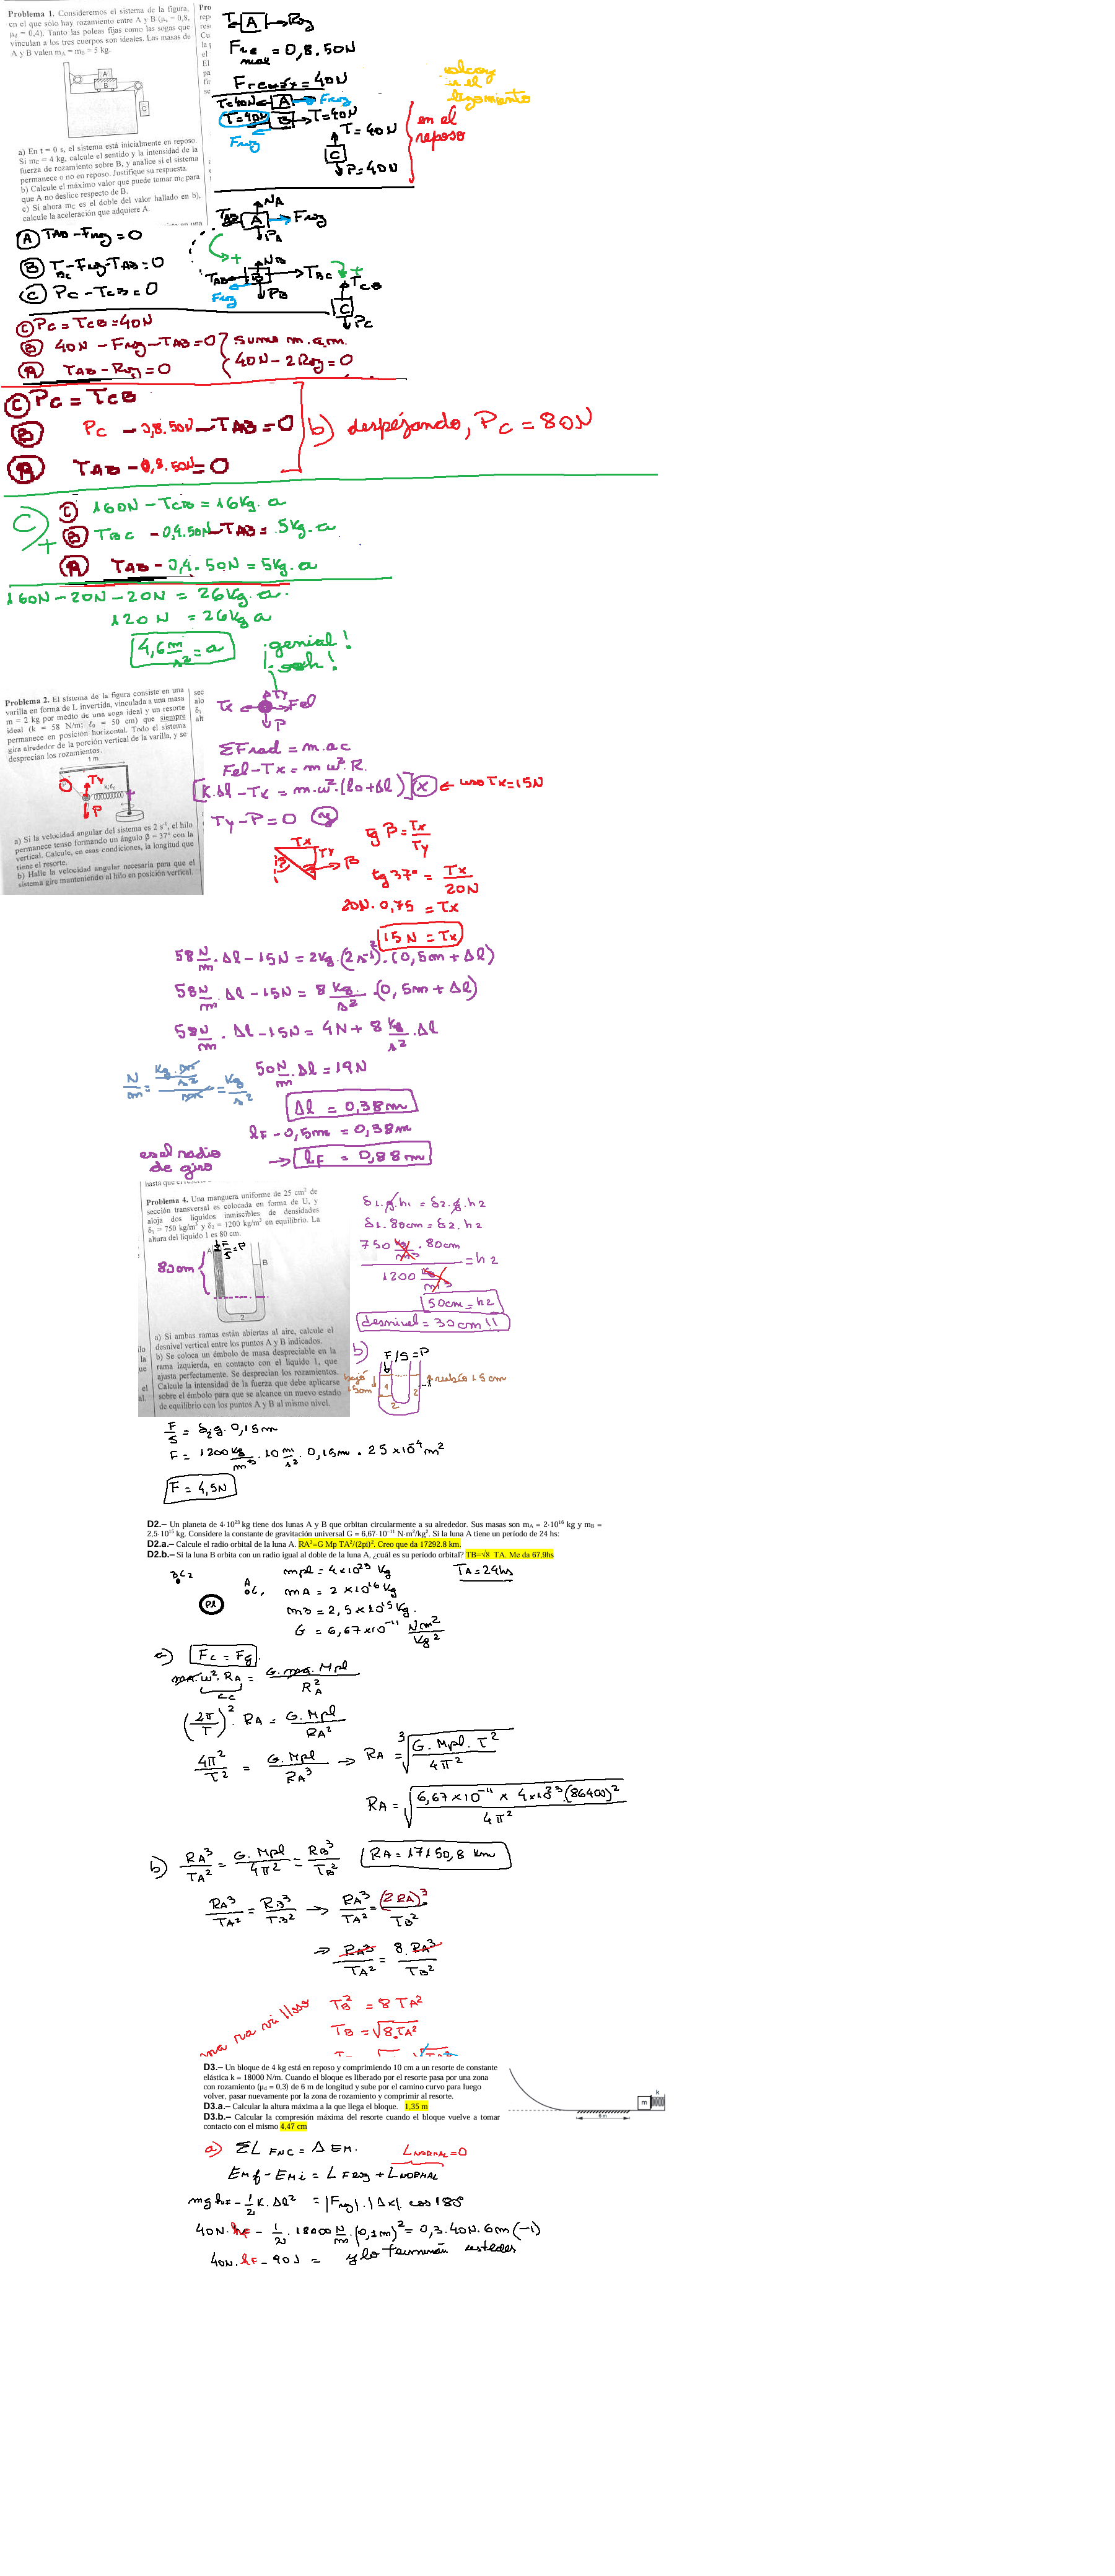 Problema 1. Consideremos el sistema de la figura,
en el que sólo hay rozamiento entre A y B (μe = 0,8,
μd = 0,4). Tanto las poleas fijas como las sogas que
vinculan a los tres cuerpos son ideales. Las masas de
A y B valen mA = mB = 5 kg.
A
B
C
a) En t = 0 s, el sistema está inicialmente en reposo.
Si mC = 4 kg, calcule el sentido y la intensidad de la
fuerza de rozamiento sobre B, y analice si el sistema
permanece o no en reposo. Justifique su respuesta.
b) Calcule el máximo valor que puede tomar mC para
que A no deslice respecto de B.
c) Si ahora mC es el doble del valor hallado en b),
calcule la aceleración que adquiere A.
T A Roz
Fre max = 0,8.50N
Fremáx = 40N
T=40N A Froz
T=40N B T=40N
Froz
T=40N
C
P=40N
en el
reposo
NA
TAB A Froz
PA
NB
TAB B TBC
Froz PB
TCB
C
PC
(A) TAB - Froz = 0
(B) TBC - Froz - TAB = 0
(C) PC - TCB = 0
(C) PC = TCB = 40N
(B) 40N - Froz - TAB = 0 } sumo m.a.m.
(A) TAB - Roz = 0 { 40N - 2Roz = 0
(C) PC = TCB
(B) PC - 0,8.50N - TAB = 0
(A) TAB - 0,8.50N = 0
b) despejando, PC = 80N
c)
(C) 160N - TCB = 16Kg.a
(B) TBC - 0,4.50N - TAB = 5Kg.a
(A) TAB - 0,4.50N = 5Kg.a
160N - 20N - 20N = 26Kg.a
120N = 26Kg a
4,6 m/s² = a
¡genial!
Problema 2. El sistema de la figura consiste en una
varilla en forma de L invertida, vinculada a una masa
m = 2 kg por medio de una soga ideal y un resorte
ideal (k = 58 N/m; ℓ0 = 50 cm) que siempre
permanece en posición horizontal. Todo el sistema
gira alrededor de la porción vertical de la varilla, y se
desprecian los rozamientos.
1 m
Ty
k; ℓ0
P
a) Si la velocidad angular del sistema es 2 s⁻¹, el hilo
permanece tenso formando un ángulo β = 37° con la
vertical. Calcule, en esas condiciones, la longitud que
tiene el resorte.
b) Halle la velocidad angular necesaria para que el
sistema gire manteniendo al hilo en posición vertical.
Ty
Tx Fel
P
ΣFrad = m.ac
Fel - Tx = m ω².R.
[K.Δl - Tx = m.ω².(l0+Δl)] (x) ← uso Tx=15N
Ty - P = 0 (y)
Tx
Ty
β
tg β = Tx/Ty
tg 37° = Tx/20N
20N.0,75 = Tx
15N = Tx
58 N/m . Δl - 15N = 2Kg.(2s⁻¹)².(0,5m + Δl)
58 N/m . Δl - 15N = 8 Kg/s² .(0,5m + Δl)
58 N/m . Δl - 15N = 4N + 8 Kg/s² . Δl
N/m = Kg.m/s² / m = Kg/s²
50 N/m . Δl = 19N
Δl = 0,38m
lF - 0,5m = 0,38m
es el radio
de giro
→ lF = 0,88m
hasta que el
Problema 4. Una manguera uniforme de 25 cm² de
sección transversal es colocada en forma de U, y
aloja dos líquidos inmiscibles de densidades
δ1 = 750 kg/m³ y δ2 = 1200 kg/m³ en equilibrio. La
altura del líquido 1 es 80 cm.
A F/S = P
B
80cm
2
a) Si ambas ramas están abiertas al aire, calcule el
desnivel vertical entre los puntos A y B indicados.
b) Se coloca un émbolo de masa despreciable en la
rama izquierda, en contacto con el líquido 1, que
ajusta perfectamente. Se desprecian los rozamientos.
Calcule la intensidad de la fuerza que debe aplicarse
sobre el émbolo para que se alcance un nuevo estado
de equilibrio con los puntos A y B al mismo nivel.
δ1.g.h1 = δ2.g.h2
δ1.80cm = δ2.h2
750 kg/m³ . 80cm / 1200 kg/m³ = h2
50cm = h2
desnivel = 30cm!!
b)
F/S = P
bajó
15cm
1
2
2
subió 15cm
F/S = δ2 g. 0,15m
F = 1200 Kg/m³ . 10 m/s² . 0,15m . 25 x10⁻⁴ m²
F = 4,5N
D2.– Un planeta de 4·10²³ kg tiene dos lunas A y B que orbitan circularmente a su alrededor. Sus masas son mA = 2·10¹⁶ kg y mB =
2,5·10¹⁵ kg. Considere la constante de gravitación universal G = 6,67·10⁻¹¹ N·m²/kg². Si la luna A tiene un período de 24 hs:
D2.a.– Calcule el radio orbital de la luna A. RA³=G Mp TA²/(2pi)². Creo que da 17292.8 km.
D2.b.– Si la luna B orbita con un radio igual al doble de la luna A, ¿cuál es su período orbital? TB=√8 TA. Me da 67.9hs
Pl
mpl = 4x10²³ Kg
TA = 24hs
mA = 2 x10¹⁶ Kg
mB = 2,5x10¹⁵ Kg.
G = 6,67x10⁻¹¹ Nm²/Kg²
a) Fc = Fg
mA.ω².RA = G.mA.Mpl / RA²
(2π/T)². RA = G.Mpl / RA²
4π²/T² = G.Mpl / RA³ → RA = ³√(G.Mpl.T² / 4π²)
RA = √(6,67x10⁻¹¹ x 4x10²³.(86400)² / 4π²)
RA = 17150,8 km
b) RA³/TA² = G.Mpl/4π² = RB³/TB²
RA³/TA² = RB³/TB² → RA³/TA² = (2RA)³/TB²
⇒ RA³/TA² = 8.RA³/TB²
maravilloso
TB² = 8 TA²
TB = √8.TA²
D3.– Un bloque de 4 kg está en reposo y comprimiendo 10 cm a un resorte de constante
elástica k = 18000 N/m. Cuando el bloque es liberado por el resorte pasa por una zona
con rozamiento (μd = 0,3) de 6 m de longitud y sube por el camino curvo para luego
volver, pasar nuevamente por la zona de rozamiento y comprimir al resorte.
D3.a.– Calcular la altura máxima a la que llega el bloque. 1,35 m
D3.b.– Calcular la compresión máxima del resorte cuando el bloque vuelve a tomar
contacto con el mismo 4,47 cm
k
m
6 m
a) ΣL FNC = ΔEM.
LNORMAL = 0
EMf - EMi = L FRoz + LNORMAL
mghF - 1/2 K.Δl² = |Froz|.|Δx|.cos 180
40N.hF - 1/2 . 18000 N/m .(0,1m)² = 0,3.40N.6m(-1)
40N.hF - 90J = y lo terminan ustedes